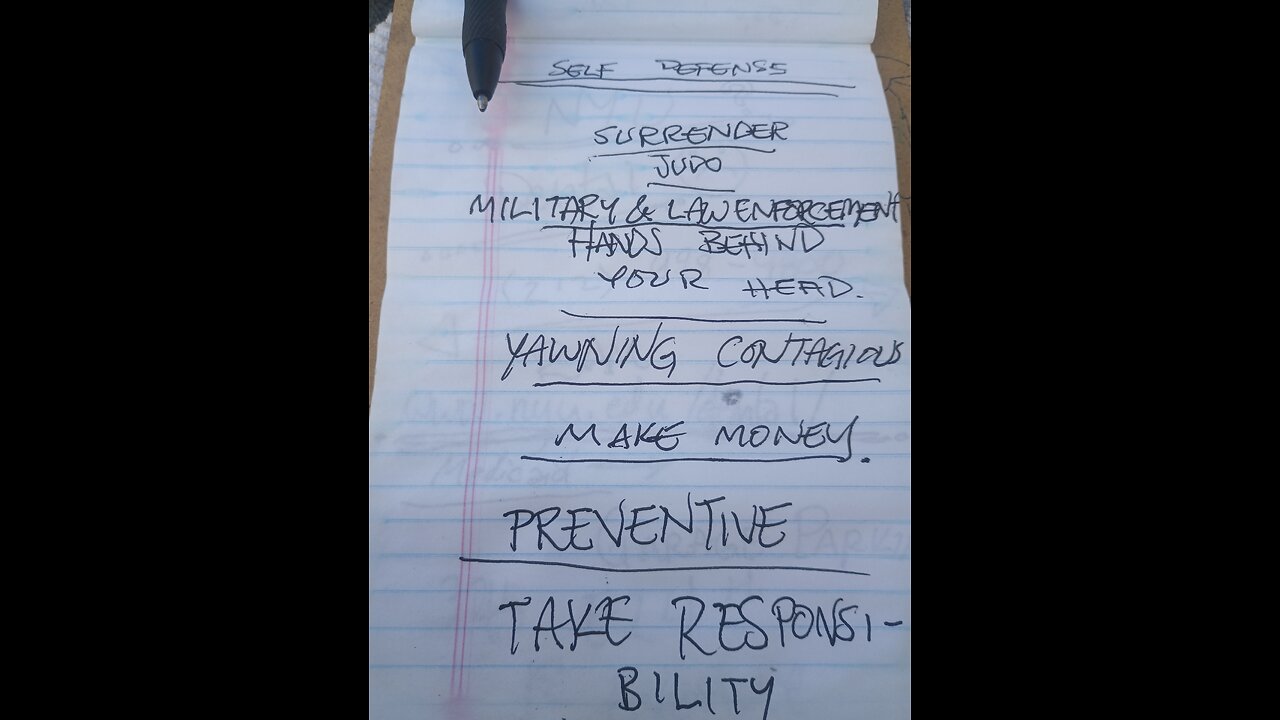 SELF DEFENSE
SURRENDER
JUDO
MILITARY & LAW ENFORCEMENT
HANDS BEHIND
YOUR HEAD.
YAWNING CONTAGIOUS
MAKE MONEY.
PREVENTIVE
TAKE RESPONSI-
BILITY